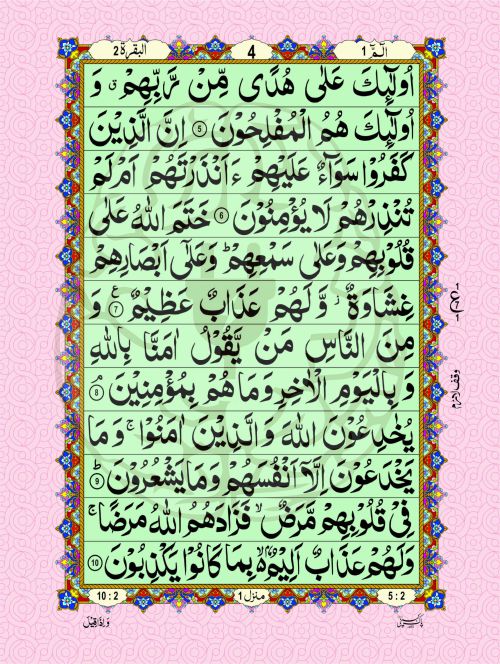 البقرة ٢ 4 الٓمّٓ ١
اُولٰٓئِكَ عَلٰی هُدًی مِّنْ رَّبِّهِمْ ۗ وَ
اُولٰٓئِكَ هُمُ الْمُفْلِحُوْنَ ۝5 اِنَّ الَّذِیْنَ
كَفَرُوْا سَوَآءٌ عَلَیْهِمْ ءَاَنْذَرْتَهُمْ اَمْ لَمْ
تُنْذِرْهُمْ لَا یُؤْمِنُوْنَ ۝6 خَتَمَ اللّٰهُ عَلٰی
قُلُوْبِهِمْ وَعَلٰی سَمْعِهِمْ ؕ وَعَلٰۤی اَبْصَارِهِمْ
غِشَاوَةٌ ؗ وَّلَهُمْ عَذَابٌ عَظِیْمٌ ۝7 ع وَ
مِنَ النَّاسِ مَنْ یَّقُوْلُ اٰمَنَّا بِاللّٰهِ
وَ بِالْیَوْمِ الْاٰخِرِ وَمَا هُمْ بِمُؤْمِنِیْنَ ۝8 ۘ
یُخٰدِعُوْنَ اللّٰهَ وَ الَّذِیْنَ اٰمَنُوْا ۚ وَ مَا
یَخْدَعُوْنَ اِلَّاۤ اَنْفُسَهُمْ وَمَا یَشْعُرُوْنَ ۝9 ؕ
فِیْ قُلُوْبِهِمْ مَّرَضٌ ۙ فَزَادَهُمُ اللّٰهُ مَرَضًا ۚ
وَلَهُمْ عَذَابٌ اَلِیْمٌۢ ۙ۬ بِمَا كَانُوْا یَكْذِبُوْنَ ۝10
وقف لازم
10 : 2 منزل ١ 5 : 2
وَ اِذَا قِیْلَ